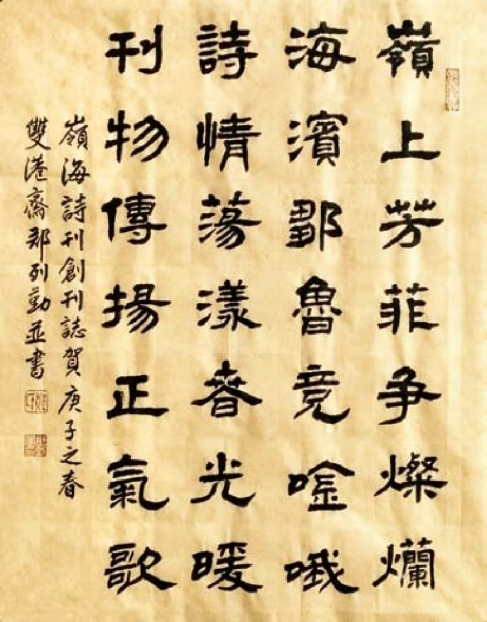 嶺上芳菲争燦爛
海濱鄒魯竞唫哦
詩情蕩漾春光暖
刊物傳揚正氣歌
嶺海詩刊創刊誌賀庚子之春
雙港齋郑列勤並書